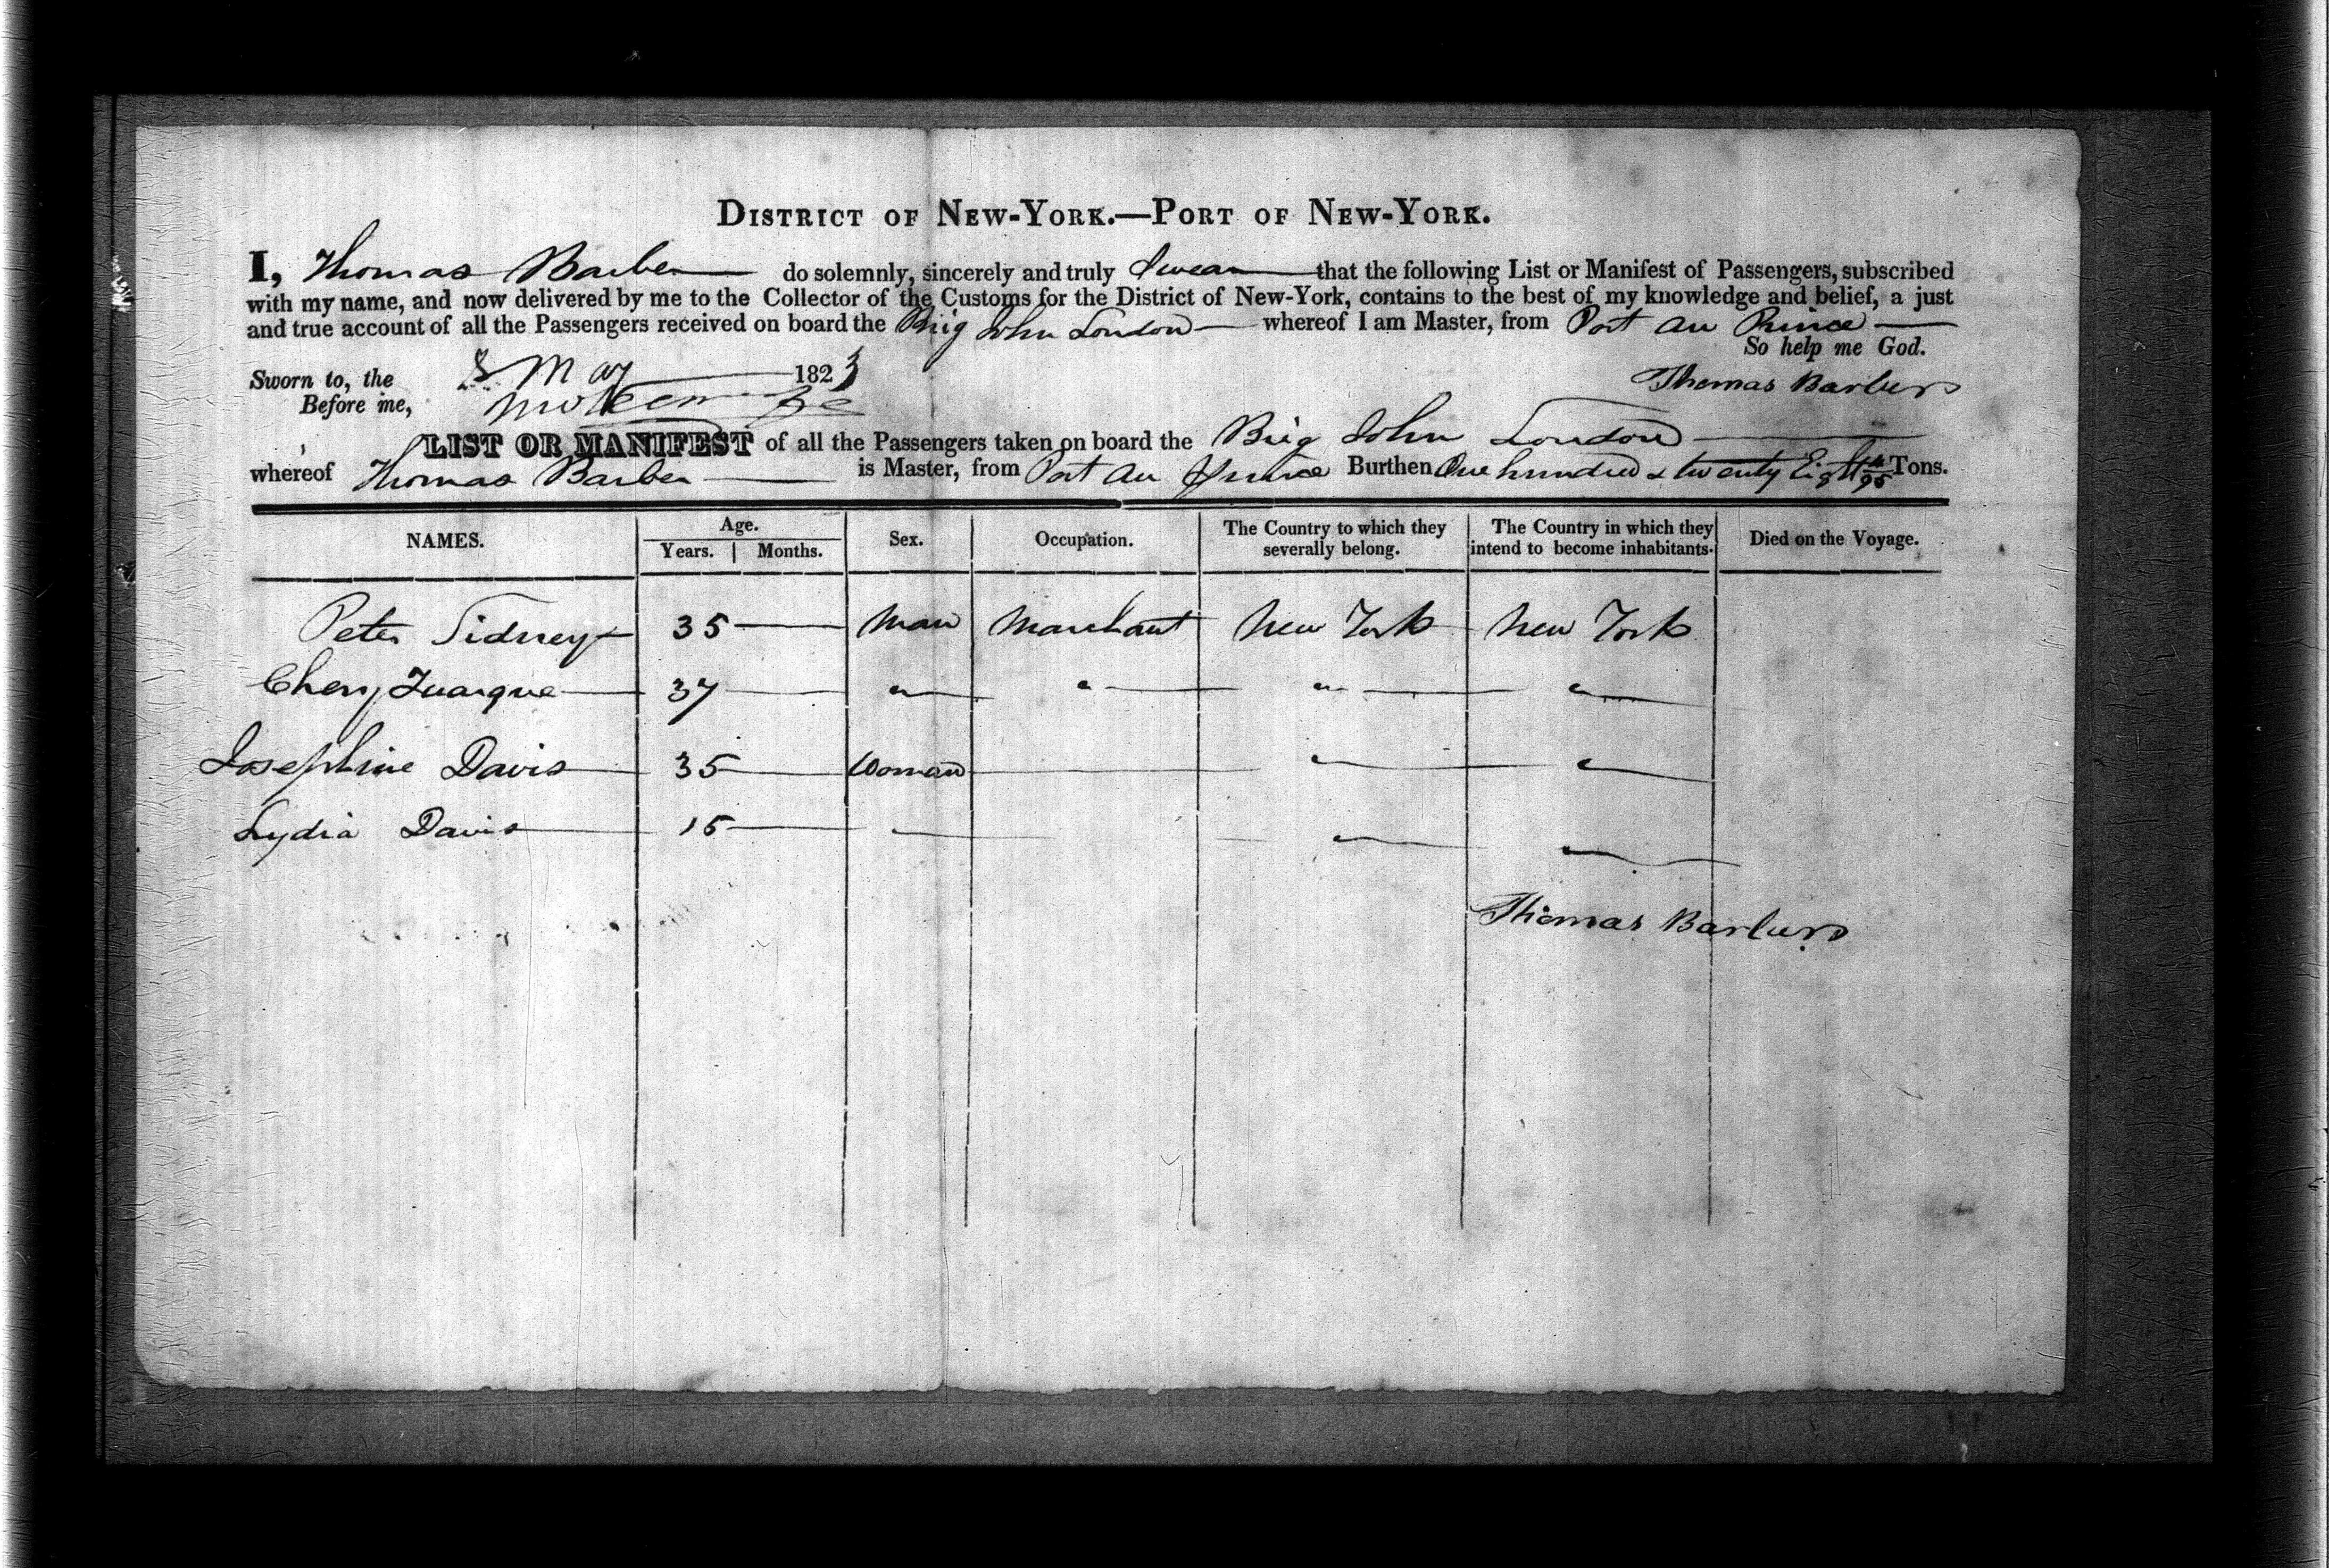 DISTRICT OF NEW-YORK.—PORT OF NEW-YORK.
I, Thomas Barber do solemnly, sincerely and truly Swear that the following List or Manifest of Passengers, subscribed
with my name, and now delivered by me to the Collector of the Customs for the District of New-York, contains to the best of my knowledge and belief, a just
and true account of all the Passengers received on board the Brig John London whereof I am Master, from Port au Prince
So help me God.
Sworn to, the 8 May 1823 Thomas Barber
Before me,
LIST OR MANIFEST of all the Passengers taken on board the Brig John London
whereof Thomas Barber is Master, from Port au Prince Burthen One hundred & twenty Eight 14/95 Tons.
NAMES. Age. Years. Months. Sex. Occupation. The Country to which they severally belong. The Country in which they intend to become inhabitants. Died on the Voyage.
Peter Sidney 35 Man Marchant New York New York
37 " " " "
Josephine Davis 35 Woman " "
Lydia Davis 15 " " "
Thomas Barber